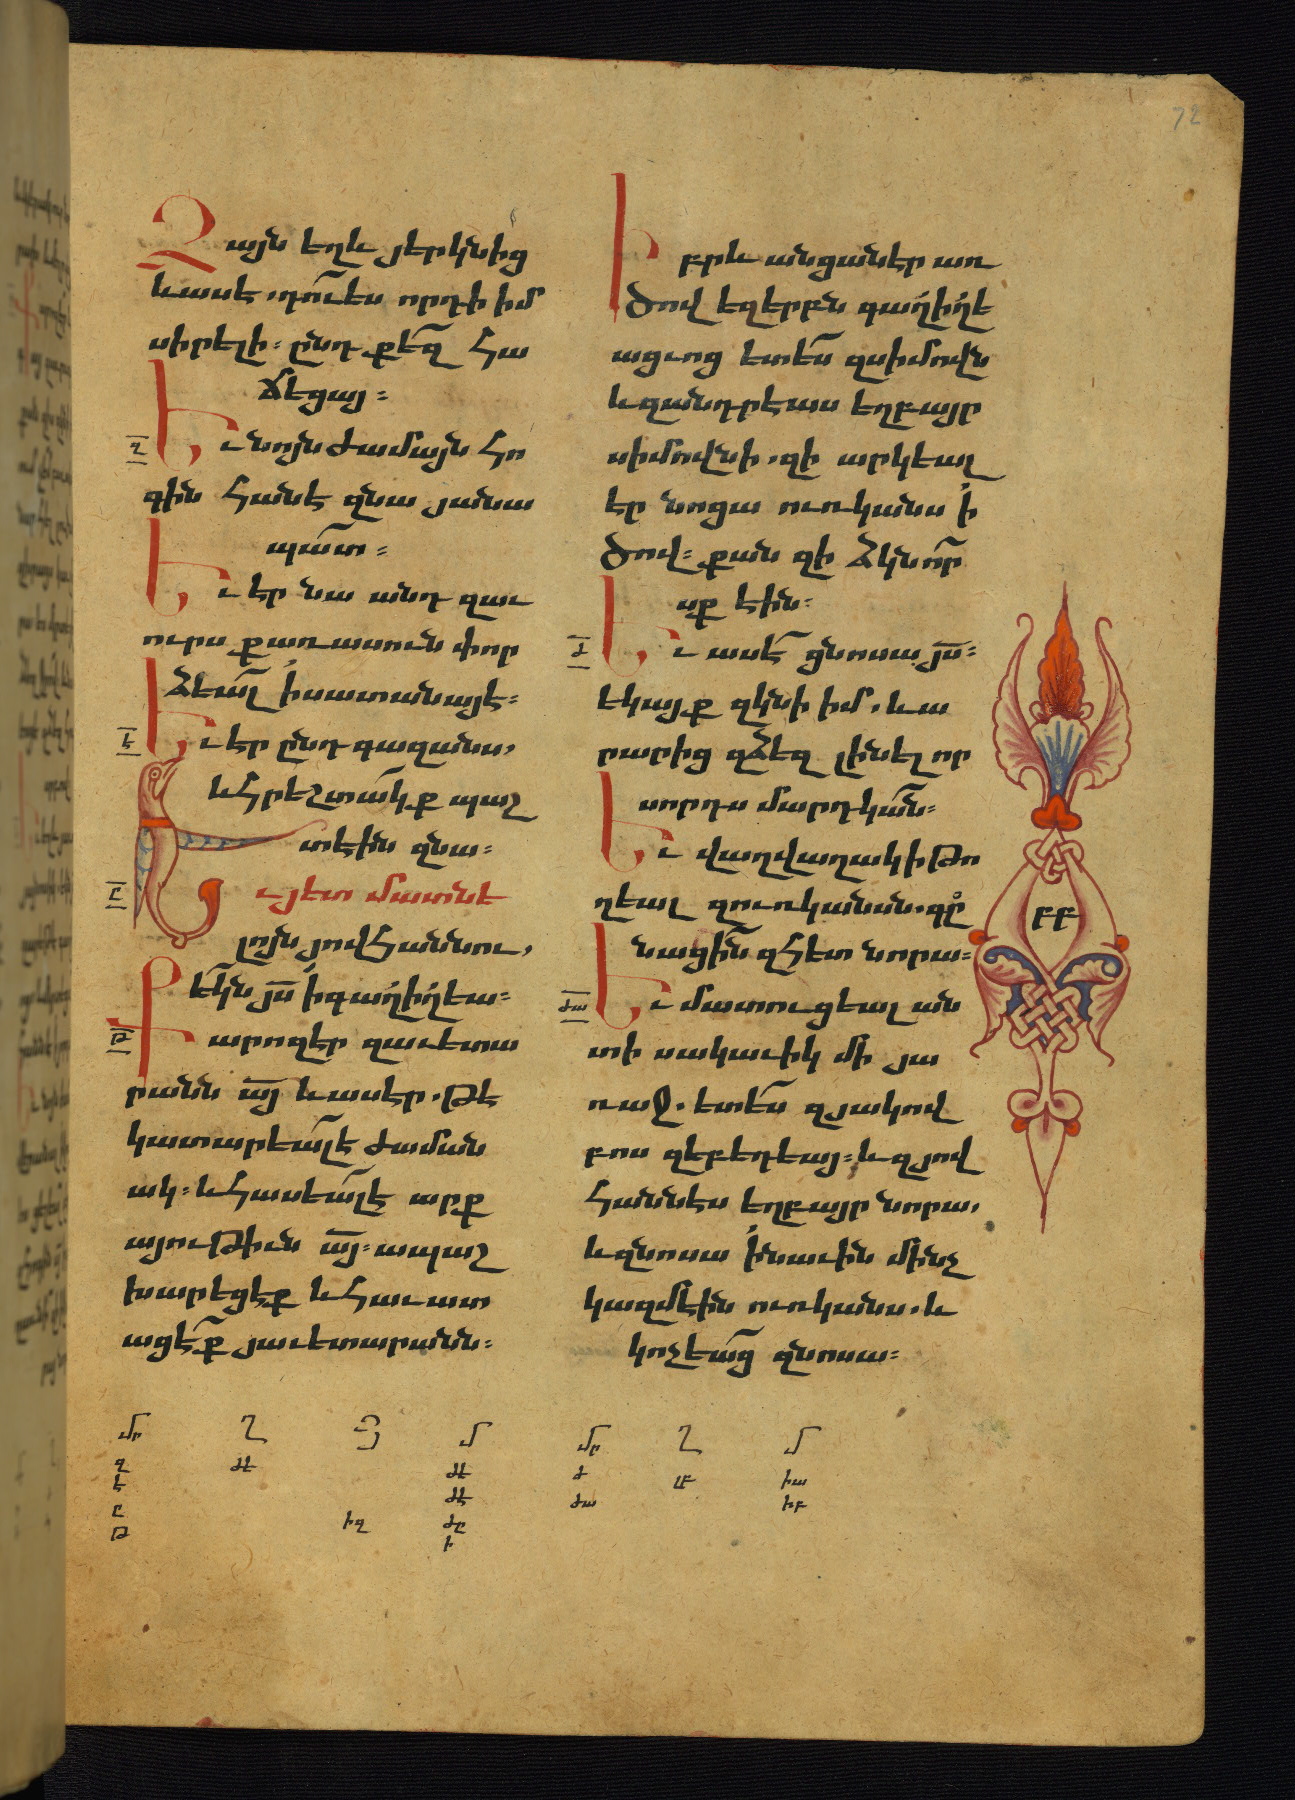 72
Ձայն եղև յերկնից
և ասէ. դու ես որդի իմ
սիրելի։ ընդ քեզ հա
ճեցայ։
զ
Եւ նոյն ժամայն հո
գին հանէ զնա յանա
պատ։
Եւ էր նա անդ զաւ
ուրս քառասուն փոր
ձեալ ի սատանայէ։
է
Եւ էր ընդ գազանս,
և հրեշտակք պաշ
տէին զնա։
ը
Եւ յետ մատնե
լոյն յովհաննու,
Եկն յս ի գաղիղեա։
թ
Քարոզէր զաւետա
րանն այ և ասէր. թէ
կատարեալ է ժաման
ակ։ և հասեալ է արք
այութիւն այ։ ապաշ
խարեցէք և հաւատ
ացէք յաւետարանն։
Իբրև անցանէր առ
ծով եզերբն գաղիղե
ացւոց ետես զսիմովն
և զանդրէաս եղբայր
սիմովնի. զի արկեալ
էր նոցա ուռկանս ի
ծով։ քան զի ձկնոր
սք էին։
ժ
Եւ ասէ ցնոսա յս։
եկայք զկնի իմ. և ա
րարից զձեզ լինել որ
սորդս մարդկան։
Եւ վաղվաղակի թո
ղեալ զուռկանսն. գը
նացին զհետ նորա։
ժա
Եւ մատուցեալ ան
տի սակաւիկ մի յա
ռաջ. ետես զյակով
բոս զեբեդեայ։ և զյով
հաննէս եղբայր նորա,
և զնոսա ի նաւին մինչ
կազմէին ուռկանս. և
կոչեաց զնոսա։
բբ
մր ղ յ մ
զ ժե ժէ
է ժէ
ը իզ ժը
թ ի
մր ղ մ
ժ լբ իա
ժա իբ